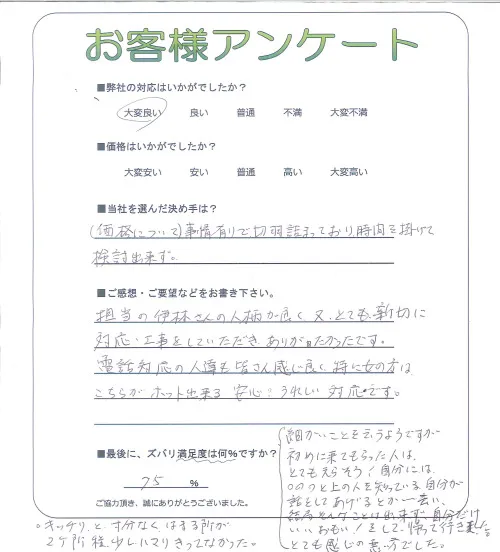 お客様アンケート
■弊社の対応はいかがでしたか？
大変良い 良い 普通 不満 大変不満
■価格はいかがでしたか？
大変安い 安い 普通 高い 大変高い
■当社を選んだ決め手は？
(価格について)事情有りで切羽詰まっており時間を掛けて
検討出来ず。
■ご感想・ご要望などをお書き下さい。
担当の伊林さんの人柄が良く又、とても親切に
対応・工事をしていただきありがたかったです。
電話対応の人達も皆さん感じ良く特に女の方は
こちらがホット出来る安心？うれしい対応です。
■最後に、ズバリ満足度は何%ですか？
75 %
ご協力頂き、誠にありがとうございました。
細かいことを言うようですが
初めに来てもらった人は、
とてもえらそう！自分には、
○○○と上の人を知っている自分が
話をしてあげるとか言い、
結局そんなことは出来ず、自分だけ
いいおもいをして帰って行きました
とても感じの悪い方でした。
○キッチリ、と、寸分なくはまる所が
2ヶ所程少しハマりきってなかった。